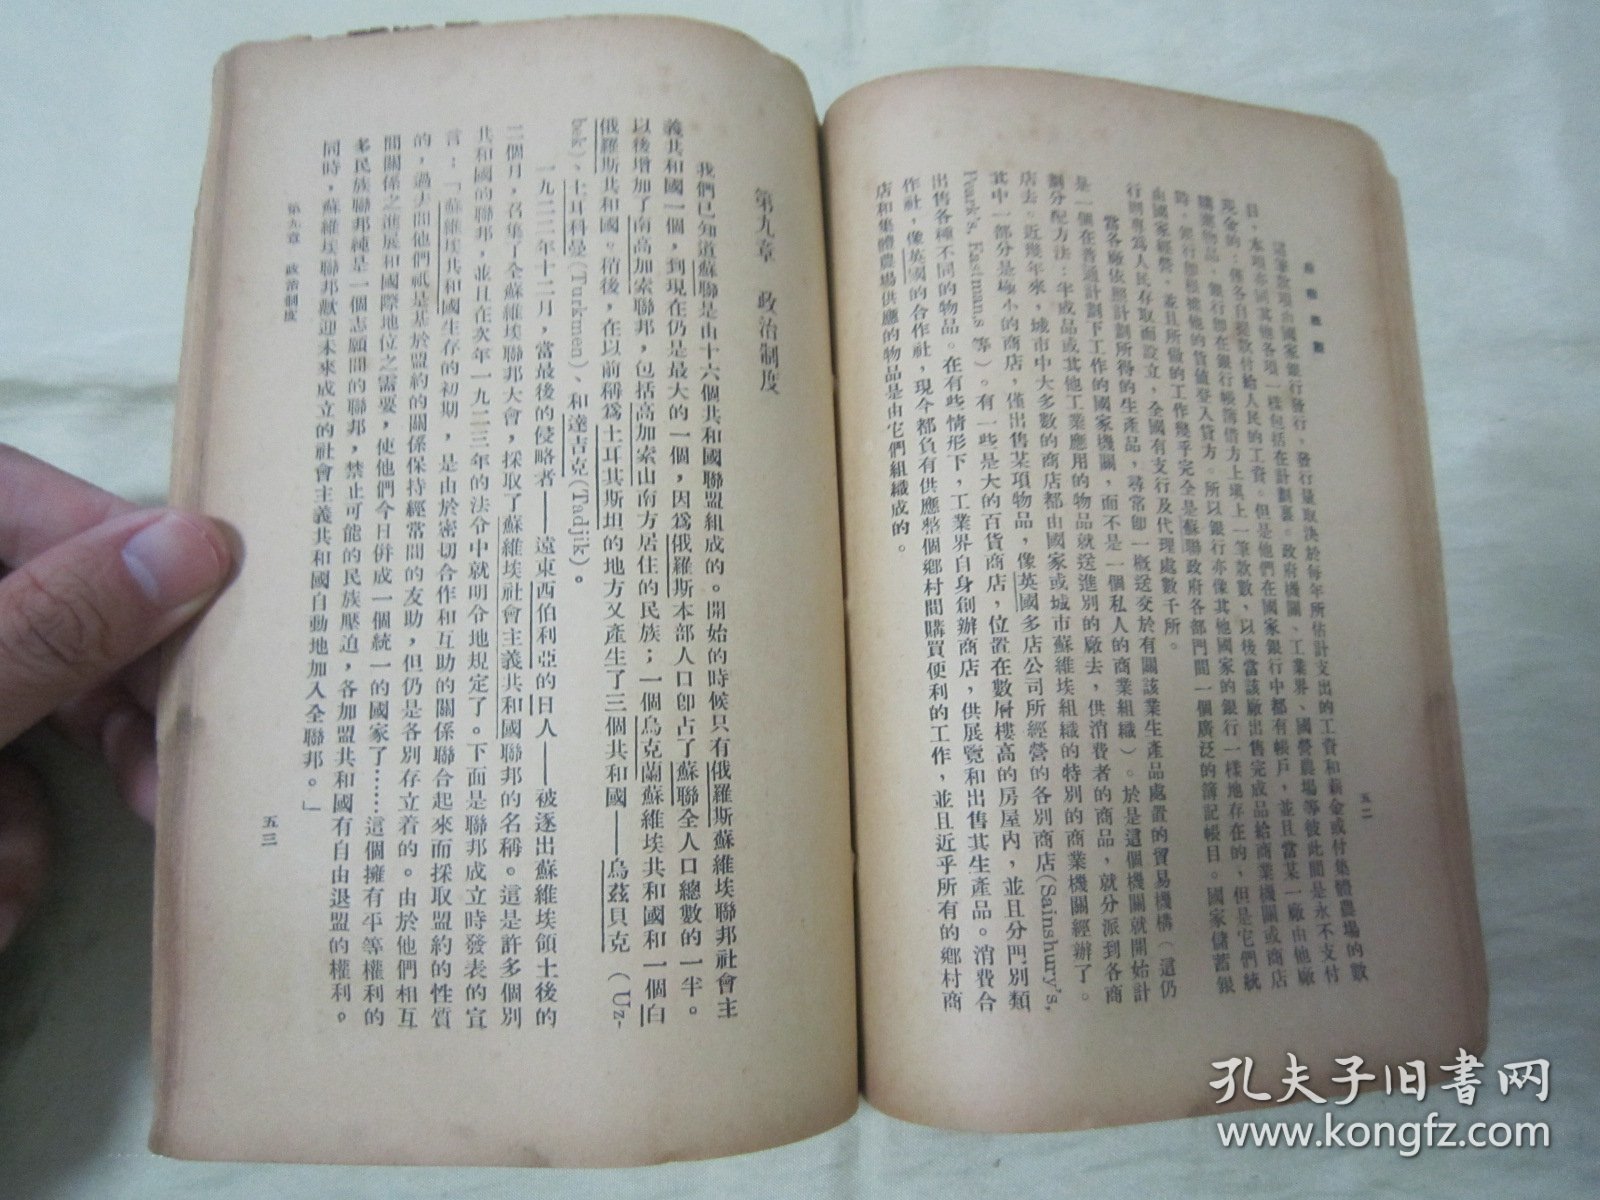 五二
這筆款項由國家銀行發行，發行量取決於每年所估計支出的工資和薪金或付集體農場的數
目，本項亦同其他各項一樣包括在計劃裏。政府機關、工業界、國營農場等彼此間是永不支付
現金的：僅各自提款付給人民的工資。但是他們在國家銀行中都有帳戶，並且當某一廠由他廠
購進物品，銀行卽在銀行帳簿借方上塡上一筆款數，以後當該廠出售完成品給商業機關或商店
時，銀行卽根據他的貨值登入貸方。所以銀行亦像其他國家的銀行一樣地存在的，但是它們統
由國家經營，並且所做的工作幾乎完全是蘇聯政府各部門間一個廣泛的簿記帳目。國家儲蓄銀
行則專爲人民存取而設立，全國有支行及代理處數千所。
當各廠依照計劃所得的生產品，尋常卽一槪送交於有關該業生產品處置的貿易機構（這仍
是一個在普通計劃下工作的國家機關，而不是一個私人的商業組織）。於是這個機關就開始計
劃分配方法：半成品或其他工業應用的物品就送進別的廠去，供消費者的商品，就分派到各商
店去。近幾年來，城市中大多數的商店都由國家或城市蘇維埃組織的特別的商業機關經辦了。
其中一部分是極小的商店，僅出售某項物品，像英國多店公司所經營的各別商店(Sainsbury's,
Peark's, Eastmans 等)。有一些是大的百貨商店，位置在數層樓高的房屋內，並且分門別類
出售各種不同的物品。在有些情形下，工業界自身創辦商店，供展覽和出售其生產品。消費合
作社，像英國的合作社，現今都負有供應整個鄉村間購買便利的工作，並且近乎所有的鄉村商
店和集體農場供應的物品是由它們組織成的。
第九章　政治制度
我們已知道蘇聯是由十六個共和國聯盟組成的。開始的時候只有俄羅斯蘇維埃聯邦社會主
義共和國一個，到現在仍是最大的一個，因爲俄羅斯本部人口卽占了蘇聯全人口總數的一半。
以後增加了南高加索聯邦，包括高加索山南方居住的民族；一個烏克蘭蘇維埃共和國和一個白
俄羅斯共和國。稍後，在以前稱爲土耳其斯坦的地方又產生了三個共和國——烏茲貝克（Uz-
bek)、土耳科曼(Turkmen)、和達吉克(Tadjik)。
一九二二年十二月，當最後的侵略者——遠東西伯利亞的日人——被逐出蘇維埃領土後的
二個月，召集了全蘇維埃聯邦大會，採取了蘇維埃社會主義共和國聯邦的名稱。這是許多個別
共和國的聯邦，並且在次年一九二三年的法令中就明分地規定了。下面是聯邦成立時發表的宣
言：「蘇維埃共和國生存的初期，是由於密切合作和互助的關係聯合起來而採取盟約的性質
的，過去間他們祇是基於盟約的關係保持經常間的友助，但仍是各別存立着的。由於他們相互
間關係之進展和國際地位之需要，使他們今日併成一個統一的國家了……這個擁有平等權利的
多民族聯邦純是一個志願間的聯邦，禁止可能的民族壓迫，各加盟共和國有自由退盟的權利。
同時，蘇維埃聯邦歡迎未來成立的社會主義共和國自動地加入全聯邦。」
第九章　政治制度
五三
孔夫子旧書网
www.kongfz.com